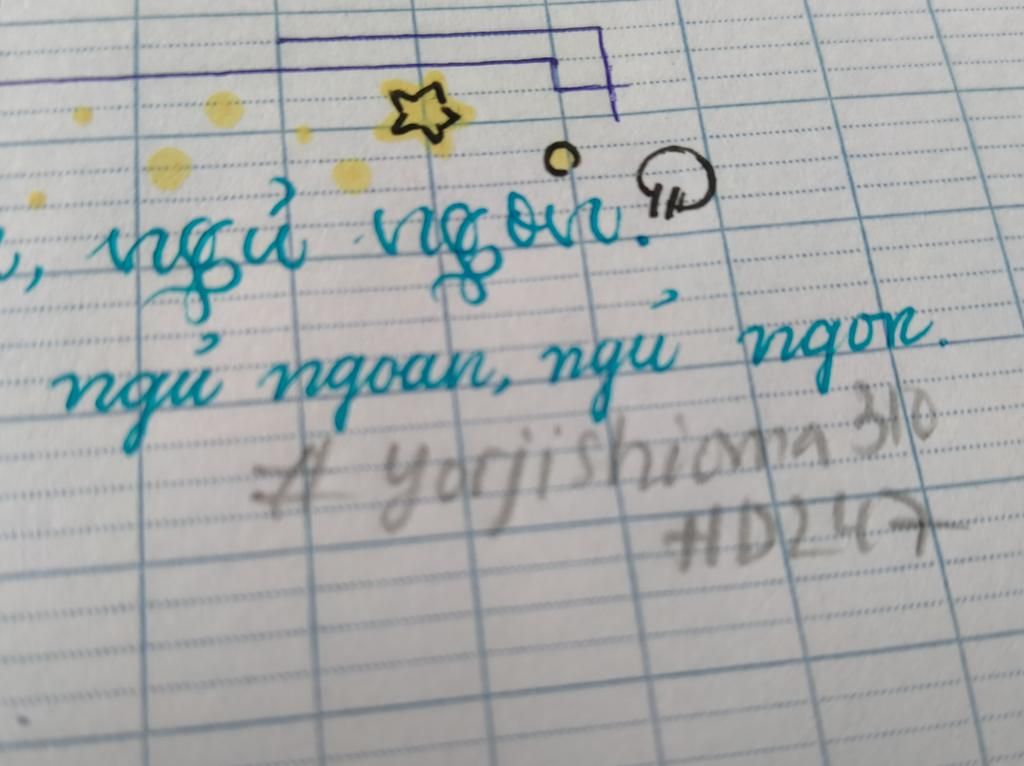 , ngủ ngon.
ngủ ngoan, ngủ ngon.
# yorjishioma 310
#D247